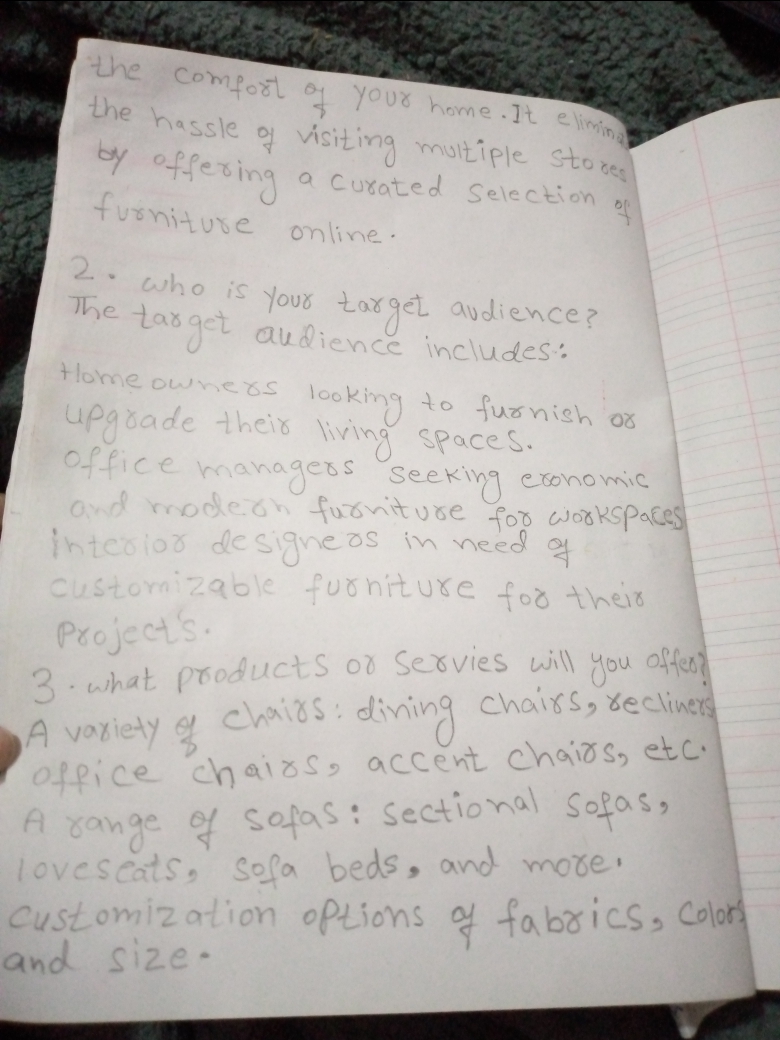 the comfort of your home. It elimina
the hassle of visiting multiple stores
by offering a curated selection of
furniture online.
2. who is your target audience?
The target audience includes:
Homeowners looking to furnish or
upgrade their living spaces.
office managers seeking economic
and modern furniture for workspaces
interior designers in need of
customizable furniture for their
projects.
3. what products or servies will you offer?
A variety of chairs: dining chairs, recliners
office chairs, accent chairs, etc.
A range of sofas: sectional sofas,
loveseats, sofa beds, and more.
customization options of fabrics, colors
and size.